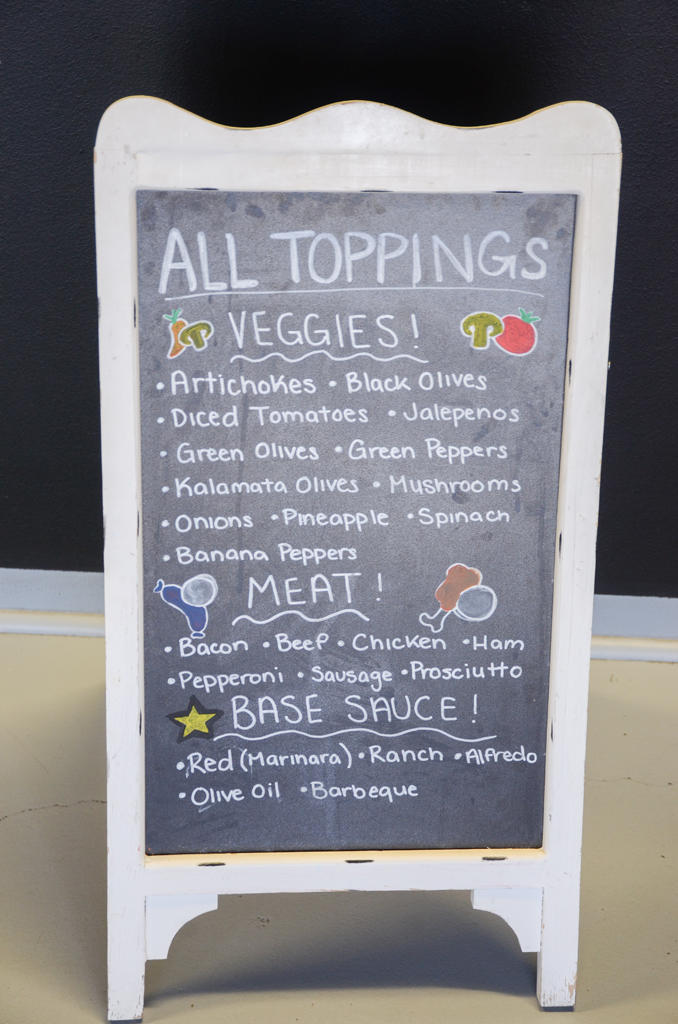 ALL TOPPINGS
VEGGIES!
• Artichokes • Black Olives
• Diced Tomatoes • Jalepenos
• Green Olives • Green Peppers
• Kalamata Olives • Mushrooms
• Onions • Pineapple • Spinach
• Banana Peppers
MEAT!
• Bacon • Beef • Chicken • Ham
• Pepperoni • Sausage • Prosciutto
BASE SAUCE!
• Red (Marinara) • Ranch • Alfredo
• Olive Oil • Barbeque